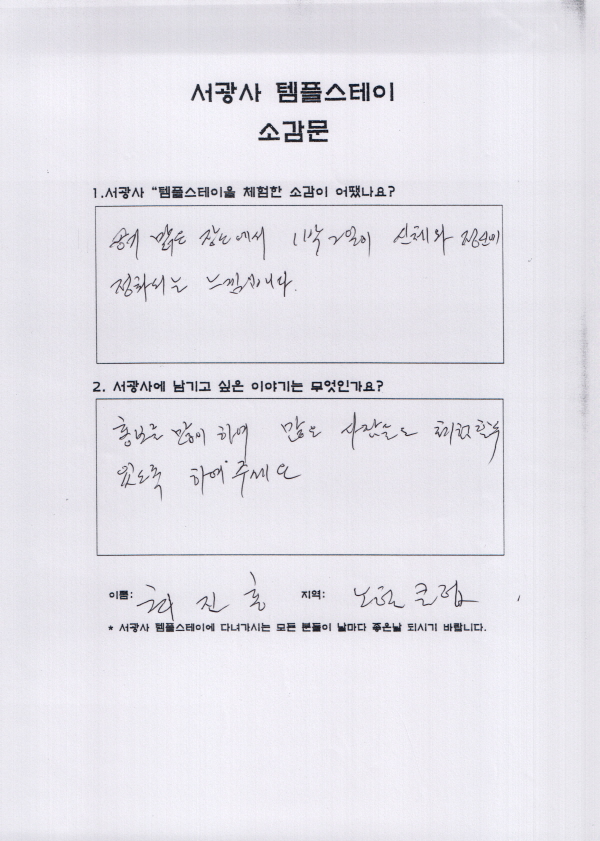 서광사 템플스테이
소감문
1.서광사 "템플스테이을 체험한 소감이 어땠나요?
공기 맑은 장소에서 1박2일이 신체와 정신이
정화되는 느낌입니다.
2. 서광사에 남기고 싶은 이야기는 무엇인가요?
홍보를 많이 하여 많은 사람들도 체험할수
있도록 하여 주세요
이름: 진홍 지역: 노원클럽
* 서광사 템플스테이에 다녀가시는 모든 분들이 날마다 좋은날 되시기 바랍니다.